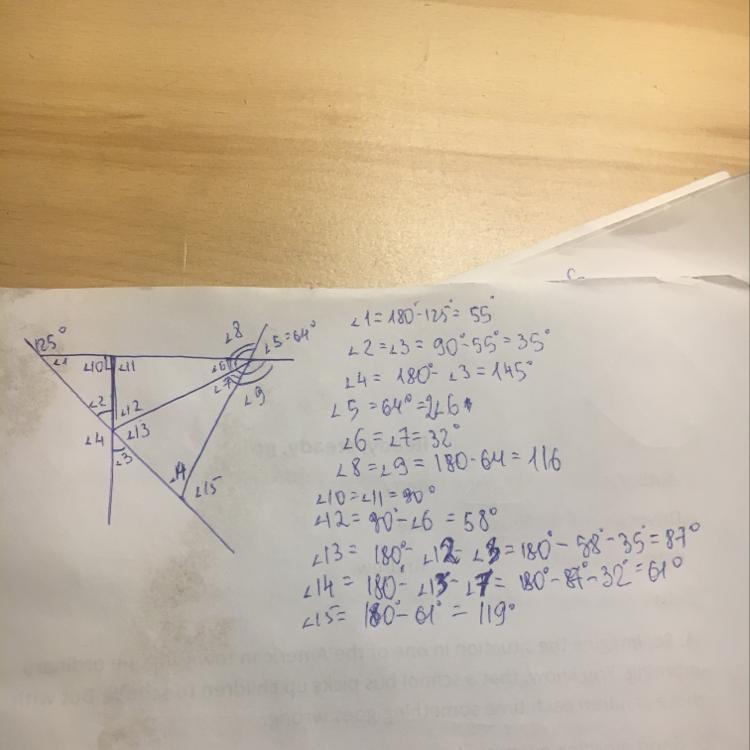 125°
∠8
∠5=64°
∠1
∠10
∠11
∠6
∠7
∠9
∠2
∠12
∠4
∠13
∠3
∠14
∠15
∠1=180°-125°=55°
∠2=∠3=90°-55°=35°
∠4=180°-∠3=145°
∠5=64°=2∠6
∠6=∠7=32°
∠8=∠9=180-64=116
∠10=∠11=90°
∠12=90°-∠6=58°
∠13=180°-∠12-∠3=180°-58°-35°=87°
∠14=180°-∠13-∠7=180°-87°-32°=61°
∠15=180°-61°=119°